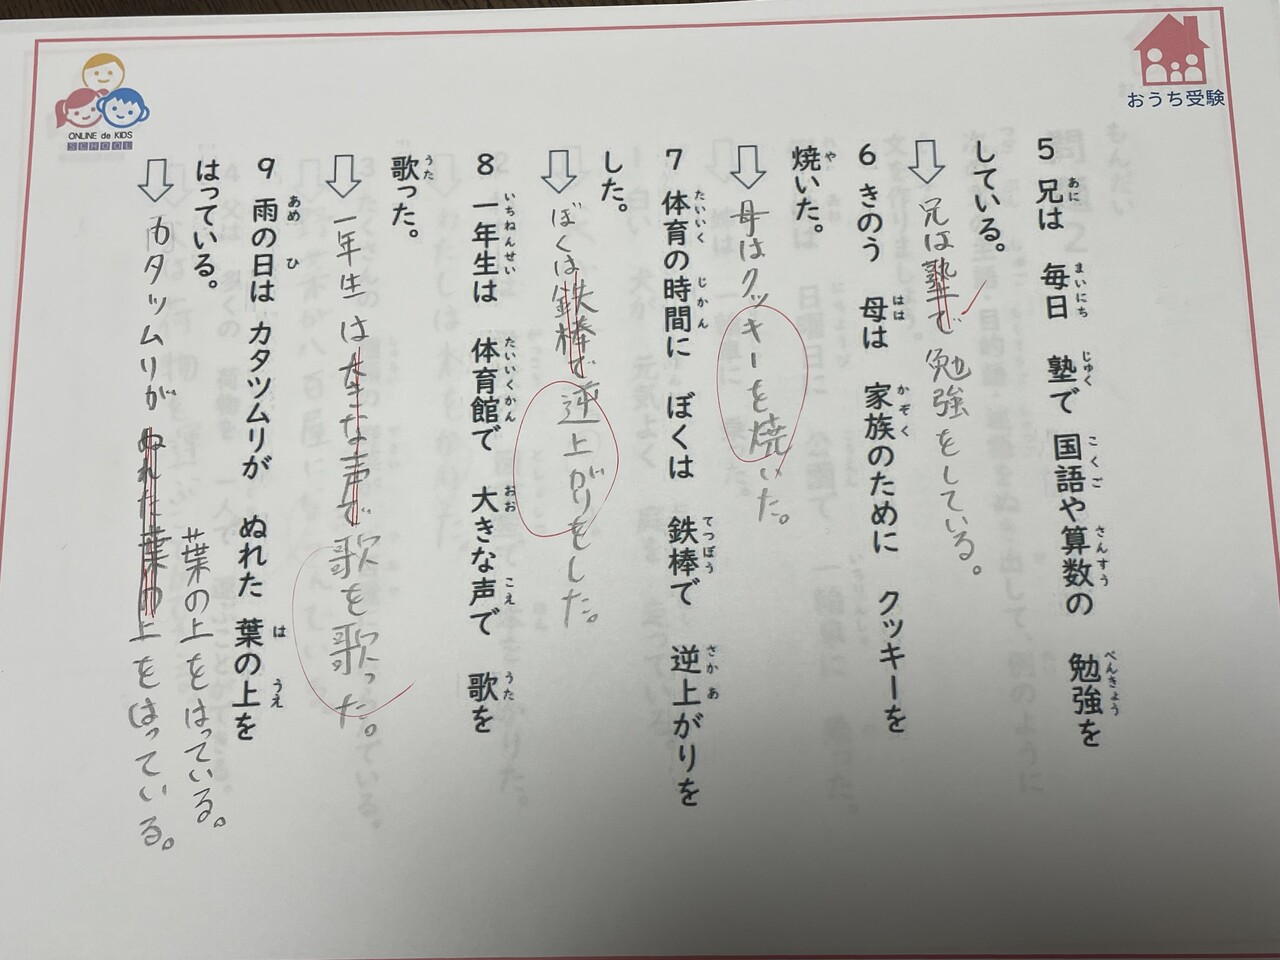 おうち受験
ONLINE de KIDS
SCHOOL
5 兄は 毎日 塾で 国語や算数の 勉強を
している。
兄は塾で勉強をしている。
6 きのう 母は 家族のために クッキーを
焼いた。
母はクッキーを焼いた。
7 体育の時間に ぼくは 鉄棒で 逆上がりを
した。
ぼくは鉄棒で逆上がりをした。
8 一年生は 体育館で 大きな声で 歌を
歌った。
一年生は大きな声で歌を歌った。
9 雨の日は カタツムリが ぬれた 葉の上を
はっている。
葉の上をはっている。
カタツムリがぬれた葉の上をはっている。